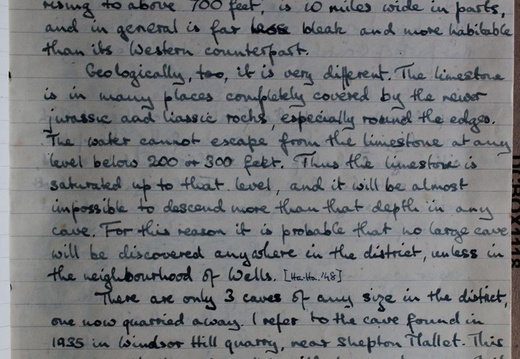 rising to above 700 feet, is 10 miles wide in parts,
and in general is far less bleak and more habitable
than its Western counterpart.
Geologically, too, it is very different. The limestone
is in many places completely covered by the newer
jurassic and liassic rocks, especially round the edges.
The water cannot escape from the limestone at any
level below 200 or 300 feet. Thus the limestone is
saturated up to that level, and it will be almost
impossible to descend more than that depth in any
cave. For this reason it is probable that no large cave
will be discovered anywhere in the district, unless in
the neighbourhood of Wells. [Ha-Ha '48]
There are only 3 caves of any size in the district,
one now quarried away. I refer to the cave found in
1935 in Windsor Hill quarry, near Shepton Mallet. This